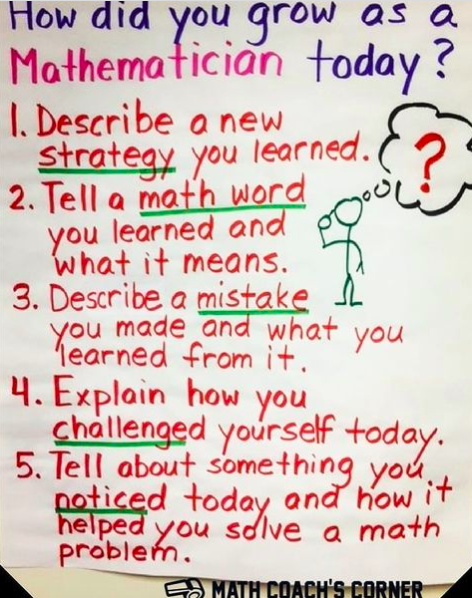 How did you grow as a
Mathematician today?
1. Describe a new
strategy you learned.
?
2. Tell a math word
you learned and
what it means.
3. Describe a mistake
you made and what you
learned from it.
4. Explain how you
challenged yourself today.
5. Tell about something you
noticed today and how it
helped you solve a math
problem.
MATH COACH'S CORNER